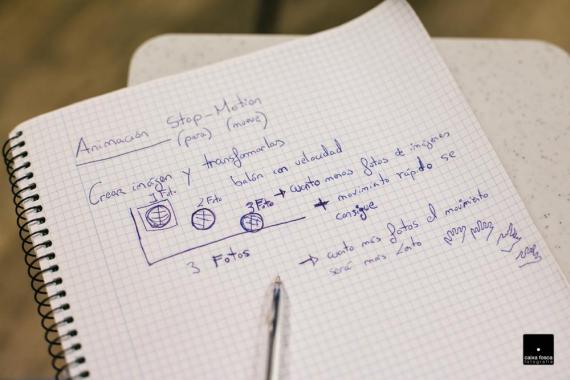 Animación Stop-Motion
(para) (mueve)
Crear imágen y transformarlas
balón con velocidad
1 Foto 2 Foto 3 Foto → cuanto menos fotos de imágenes
+ movimiento rápido se
consigue
3 Fotos
→ cuanto más fotos el movimiento
será más lento
caixa fosca
fotografia